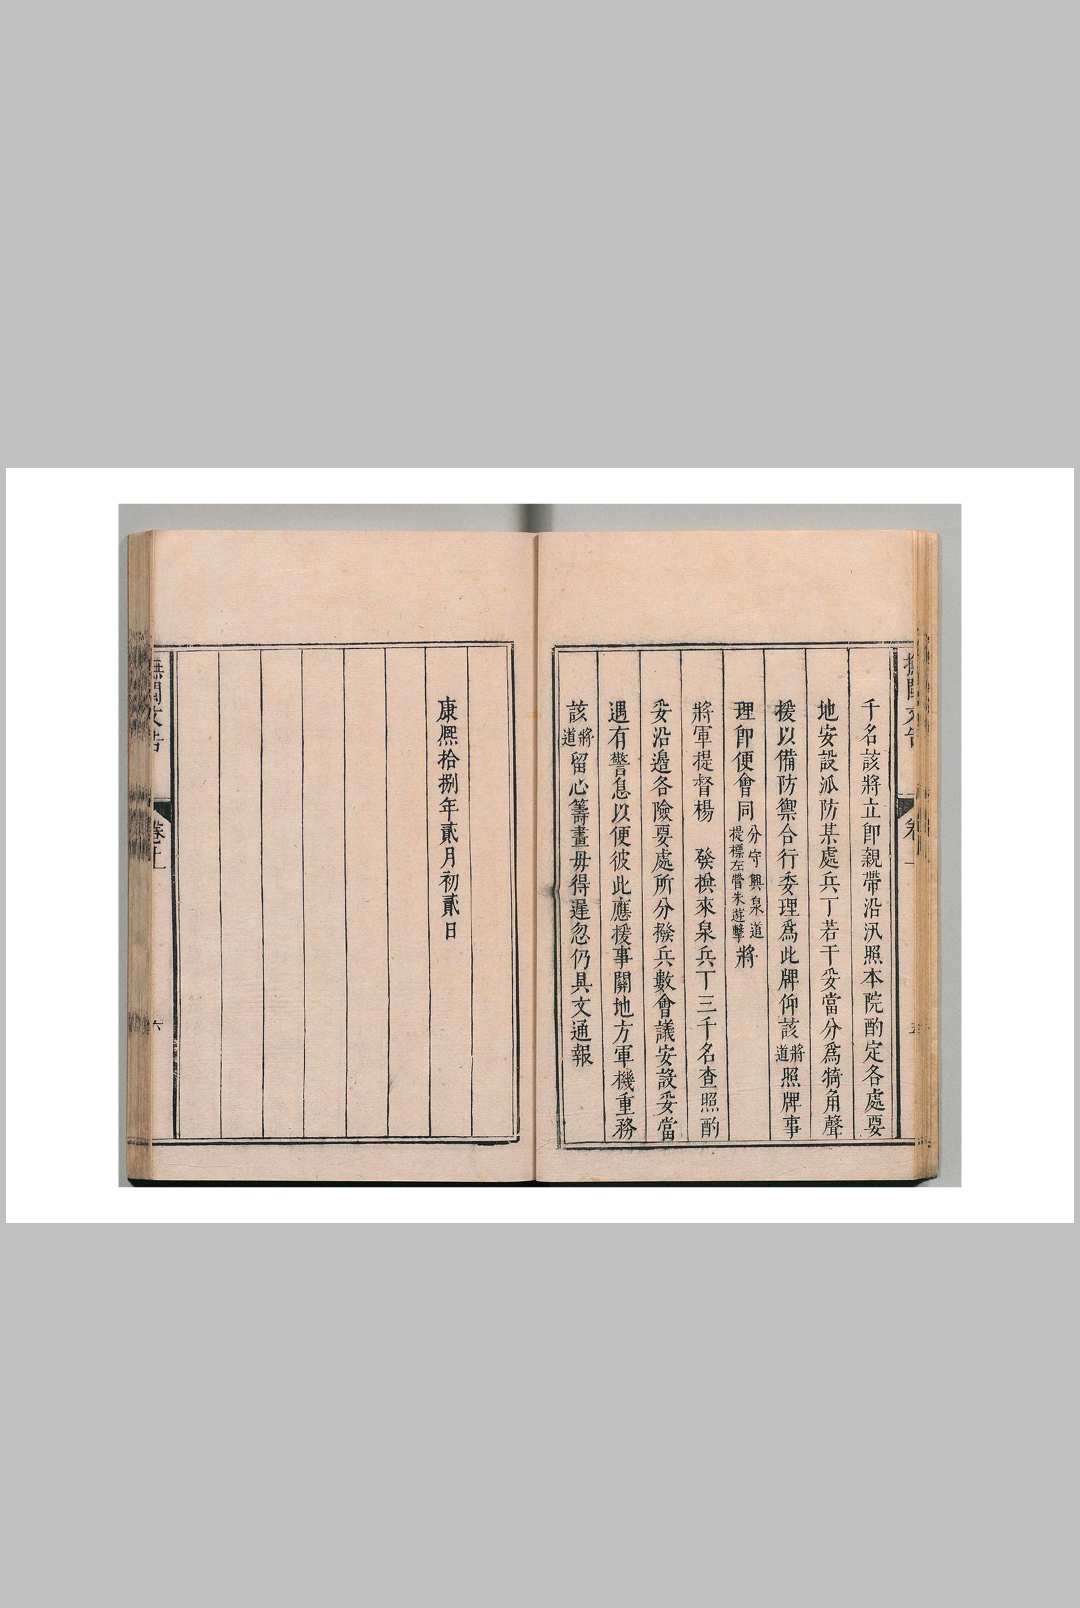 千名該將立卽親帶沿汛照本院酌定各處要
地安設派防某處兵丁若干妥當分爲犄角聲
援以備防禦合行委理爲此牌仰該將道照牌事
理卽便會同分守興泉道提標左營朱遊擊將
將軍提督楊 發換來泉兵丁三千名查照酌
妥沿邊各險要處所分撥兵數會議安設妥當
遇有警息以便彼此應援事關地方軍機重務
該將道留心籌畫毋得遲忽仍具文通報
康熙拾捌年貳月初貳日
撫閩文告
卷十一
六